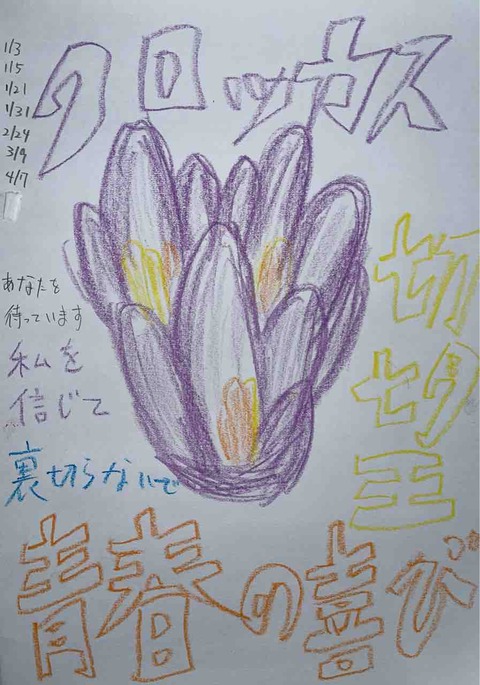 クロッカス
1/3
1/5
1/21
1/31
2/24
3/9
4/7
切望
あなたを
待っています
私を
信じて
裏切らないで
青春の喜び